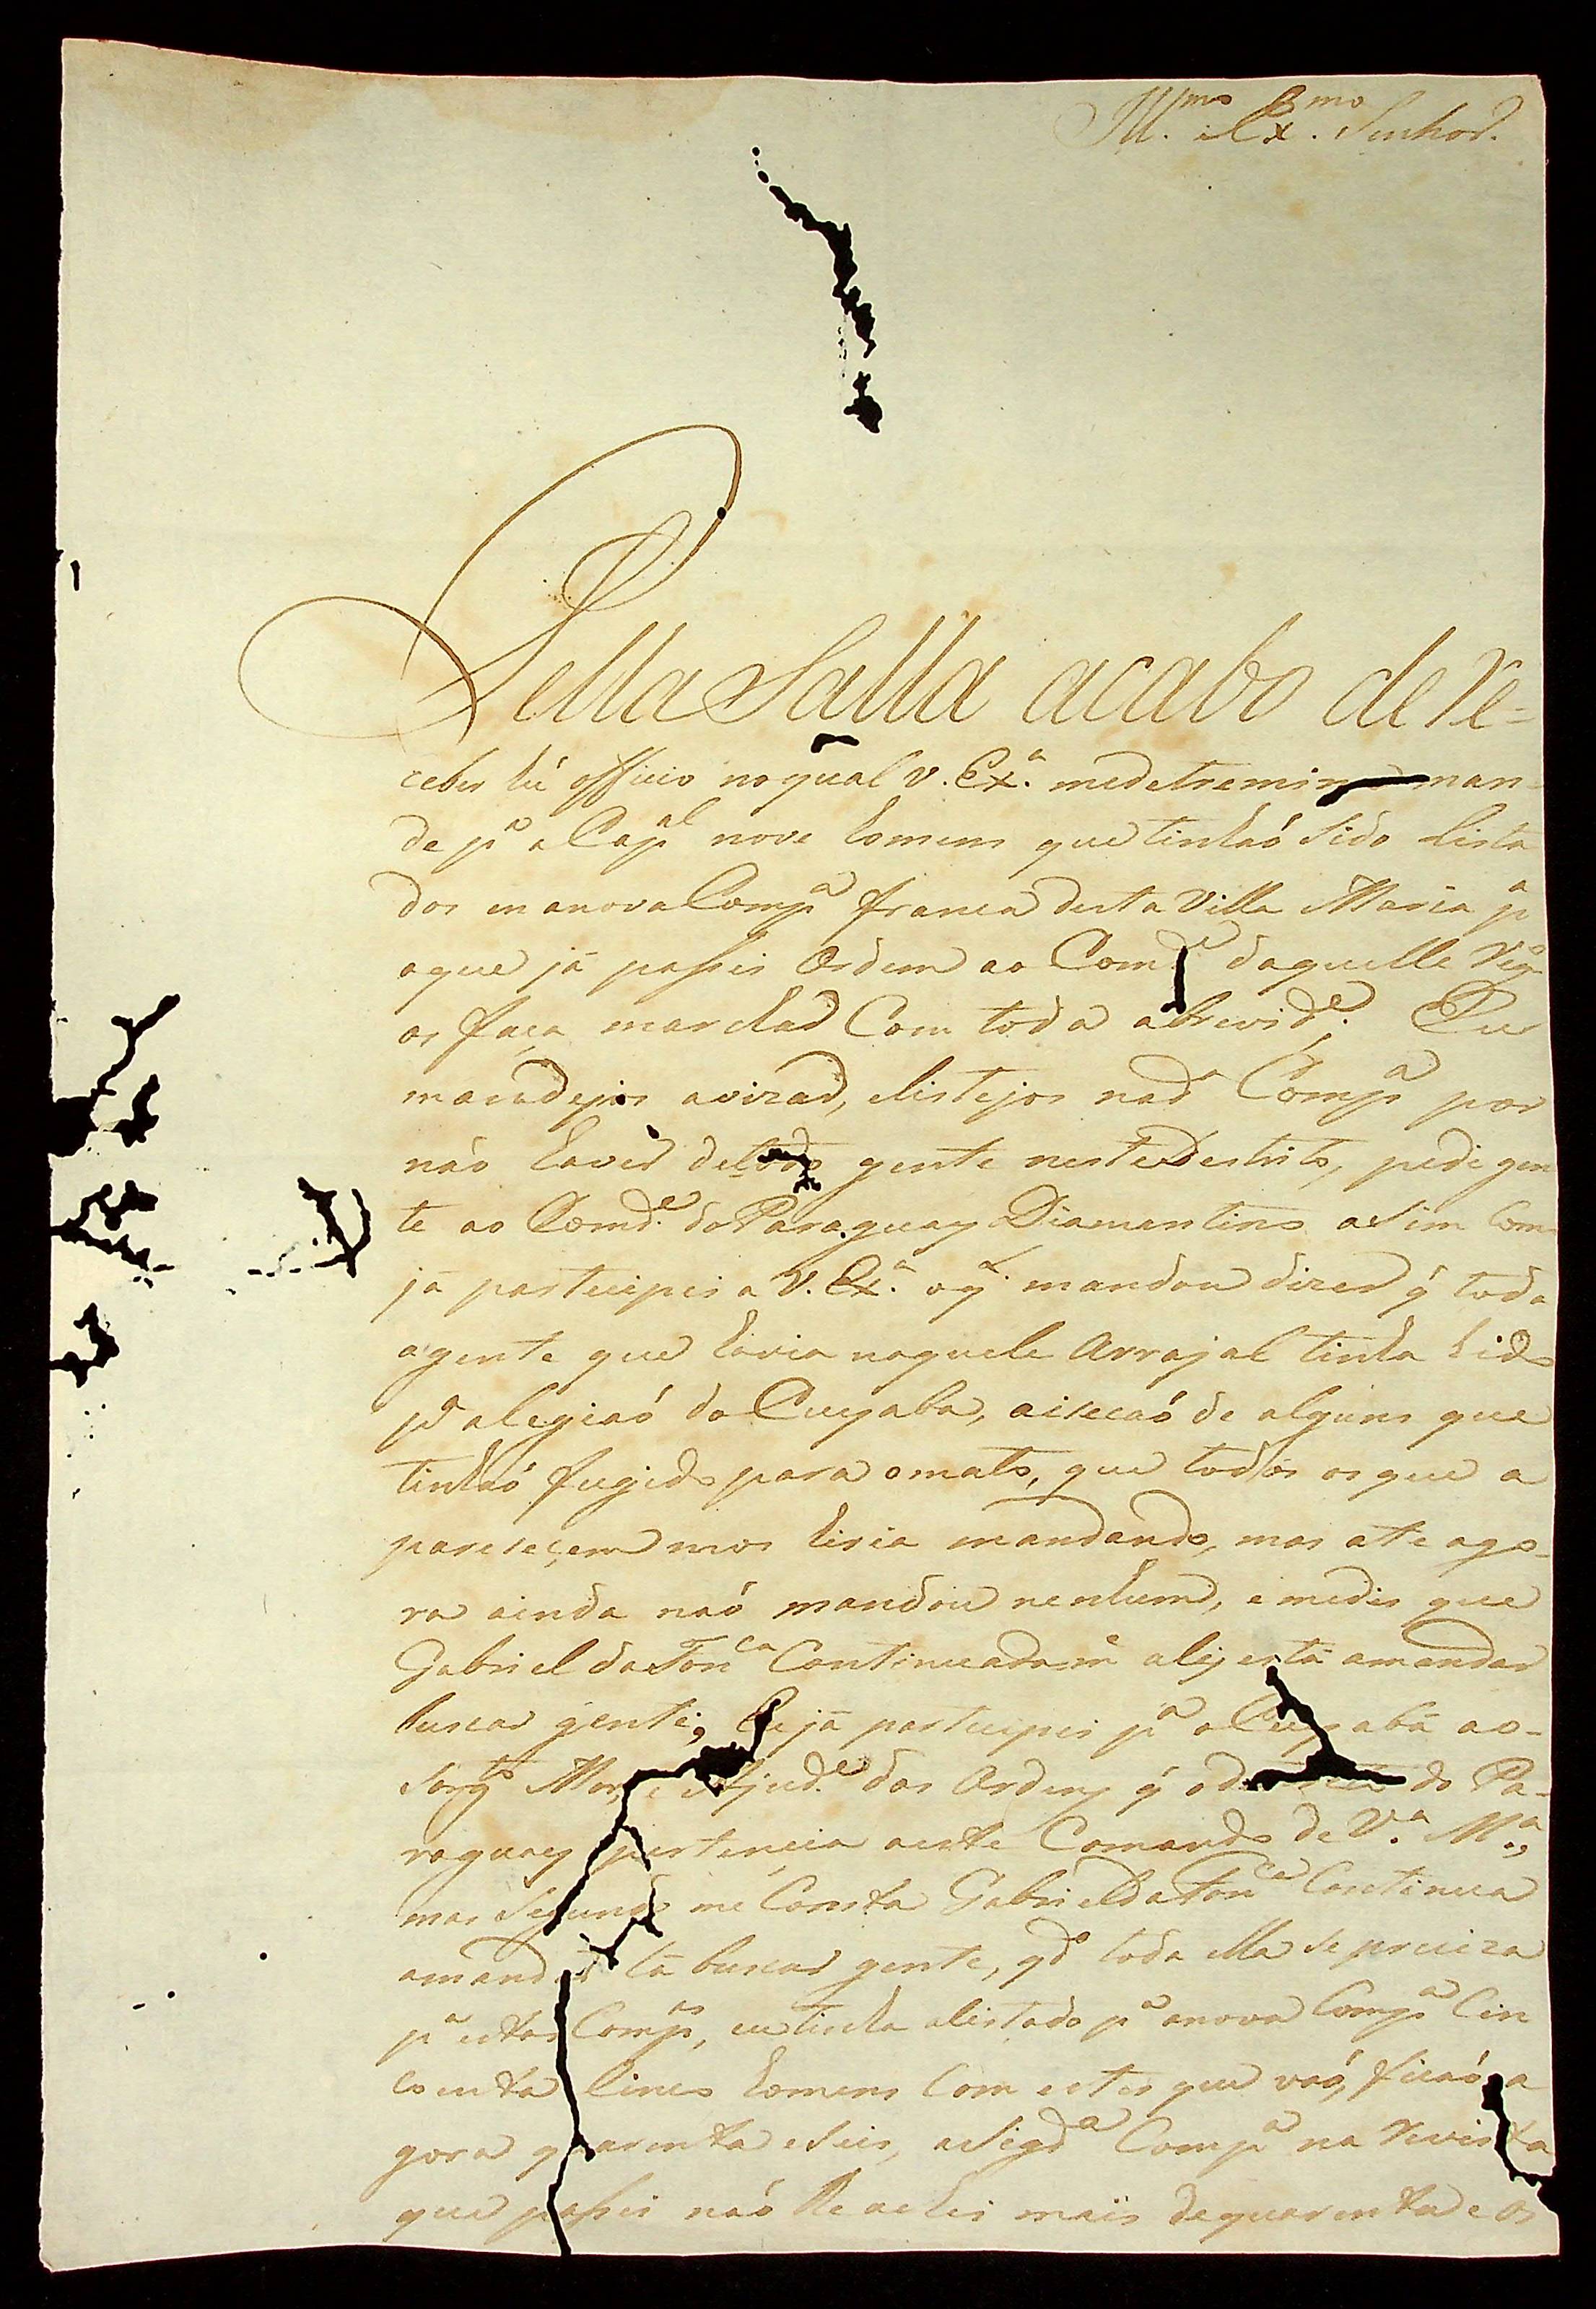 Ill.mo e Ex.mo Senhor.
Pella Salla acabo de re=
ceber hú officio no qual V. Ex.a me detremina man-
de p.a a Cap.al nove homens que tinhaó sido lista
dos em a nova Comp.a franca desta Villa Maria p.a
o que já passei Ordem ao Com.de daquelle
os faça marchar Com toda a brevid.e. Eu
avizar, e listejos na d.a Comp.a por
não haver de todo gente neste Destrito, pedi gen
te ao Comd.e do Paraguay Diamantino asim Com
já partecipei a V. Ex.a o q.l mandou dizer q̃ toda
a gente que havia naquele Arrajal tinha hido
p.a a legiaó do Cuyaba, a iseçaó de alguns que
tinhaó fugido para o mato, que todos os que a
pareseçem mos hiria mandando, mas ate ago-
ra ainda naó mandou nenhum, e me dis que
Gabriel da Fon.ca Continuadam.e ali está a mandar
buscar gente; Eu já partecipei p.a o Cuyabá ao
Sarg.to Mor, e Ajud.e das Ordens q̃ o do Pa-
raguay pertencia a este Comando de V.a M.a,
mas Segundo me Consta Gabriel da Fon.ca Continua
a mandar lá buscar gente, q.do toda ella Se preciza
p.a estas Comp.as, eu tinha alistado p.a a nova Comp.a Cin
coenta e Cinco homens Com estes que vaó, ficaó a
gora quarenta e Seis, a Seg.da Comp.a na revista
que passei naó lhe achei mais de quarenta e os